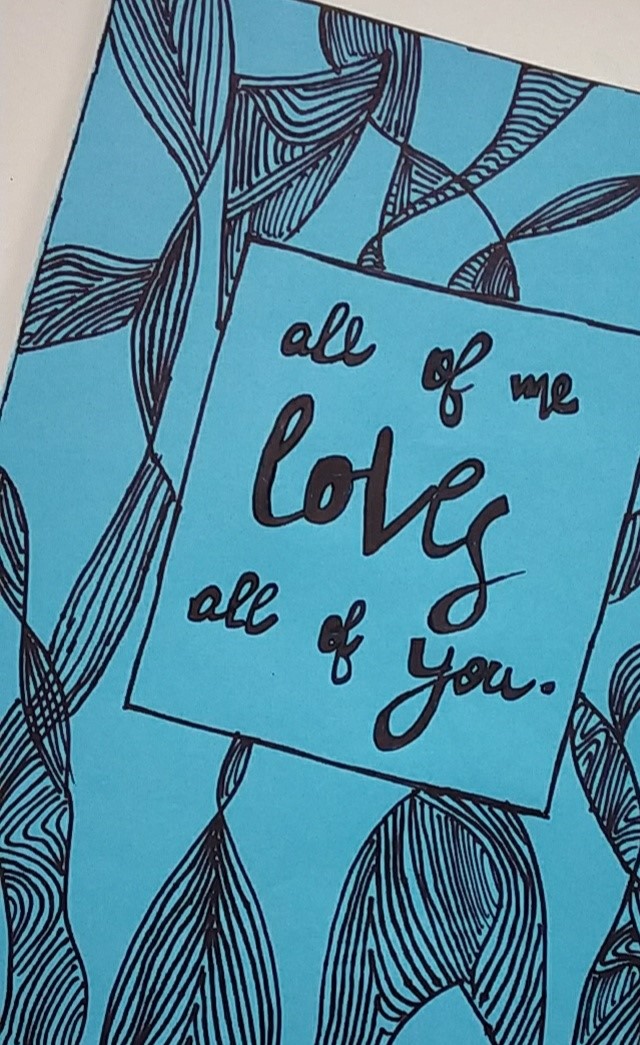 all of me
loves
all of you.